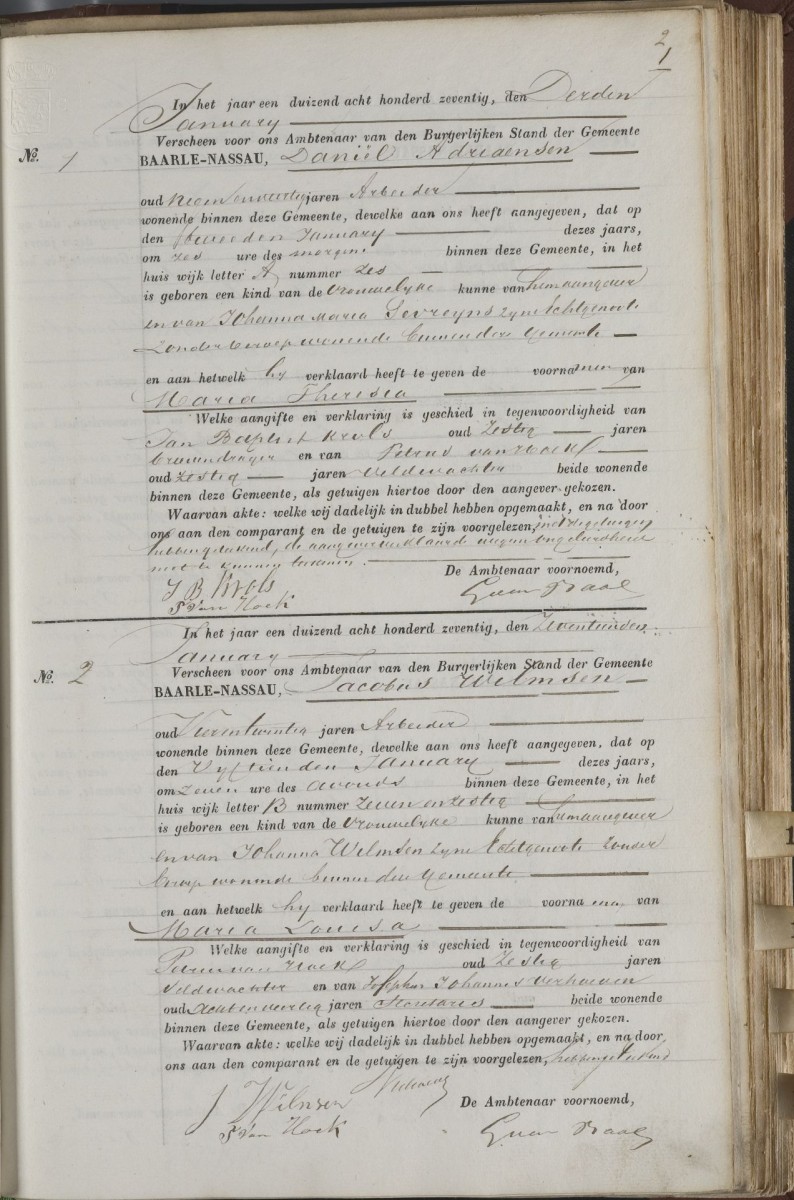 2
1
In het jaar een duizend acht honderd zeventig, den Derden
January
Verscheen voor ons Ambtenaar van den Burgerlijken Stand der Gemeente
No. 1
BAARLE-NASSAU, Daniël Adriaensen
oud negenenveertig jaren Arbeider
wonende binnen deze Gemeente, dewelke aan ons heeft aangegeven, dat op
den tweeden January dezes jaars,
om zes ure des morgens binnen deze Gemeente, in het
huis wijk letter A, nummer zes
is geboren een kind van de Vrouwelyke kunne van hem aangever
en van Johanna Maria Sevreyns zyne Echtgenoote
zonder beroep wonende binnen deze Gemeente
en aan hetwelk hy verklaard heeft te geven de voornamen van
Maria Theresia
Welke aangifte en verklaring is geschied in tegenwoordigheid van
Jan Baptist Krols oud Zestig jaren
brievendrager en van Petrus van Hoek
oud Zestig jaren Veldwachter beide wonende
binnen deze Gemeente, als getuigen hiertoe door den aangever gekozen.
Waarvan akte: welke wij dadelijk in dubbel hebben opgemaakt, en na door
ons aan den comparant en de getuigen te zijn voorgelezen, met de getuigen
hebben geteekend, de aangever verklaarde wegens ongeleerdheid
niet te kunnen teekenen.
De Ambtenaar voornoemd,
J B Krols
P Van Hoek
In het jaar een duizend acht honderd zeventig, den Zeventienden
January
Verscheen voor ons Ambtenaar van den Burgerlijken Stand der Gemeente
No. 2
BAARLE-NASSAU, Jacobus Wilmsen
oud jaren Arbeider
wonende binnen deze Gemeente, dewelke aan ons heeft aangegeven, dat op
den Vyftienden January dezes jaars,
om zeven ure des avonds binnen deze Gemeente, in het
huis wijk letter B nummer zeven en zestig
is geboren een kind van de Vrouwelyke kunne van hem aangever
en van Johanna Wilmsen zyne Echtgenoote zonder
beroep wonende binnen deze Gemeente
en aan hetwelk hy verklaard heeft te geven de voornamen van
Maria Louisa
Welke aangifte en verklaring is geschied in tegenwoordigheid van
Petrus van Hoek oud Zestig jaren
Veldwachter en van Josephus Johannes Verhoeven
oud Achtenveertig jaren Secretaris beide wonende
binnen deze Gemeente, als getuigen hiertoe door den aangever gekozen.
Waarvan akte: welke wij dadelijk in dubbel hebben opgemaakt, en na door
ons aan den comparant en de getuigen te zijn voorgelezen, hebben geteekend
J Wilmsen
De Ambtenaar voornoemd,
P Van Hoek